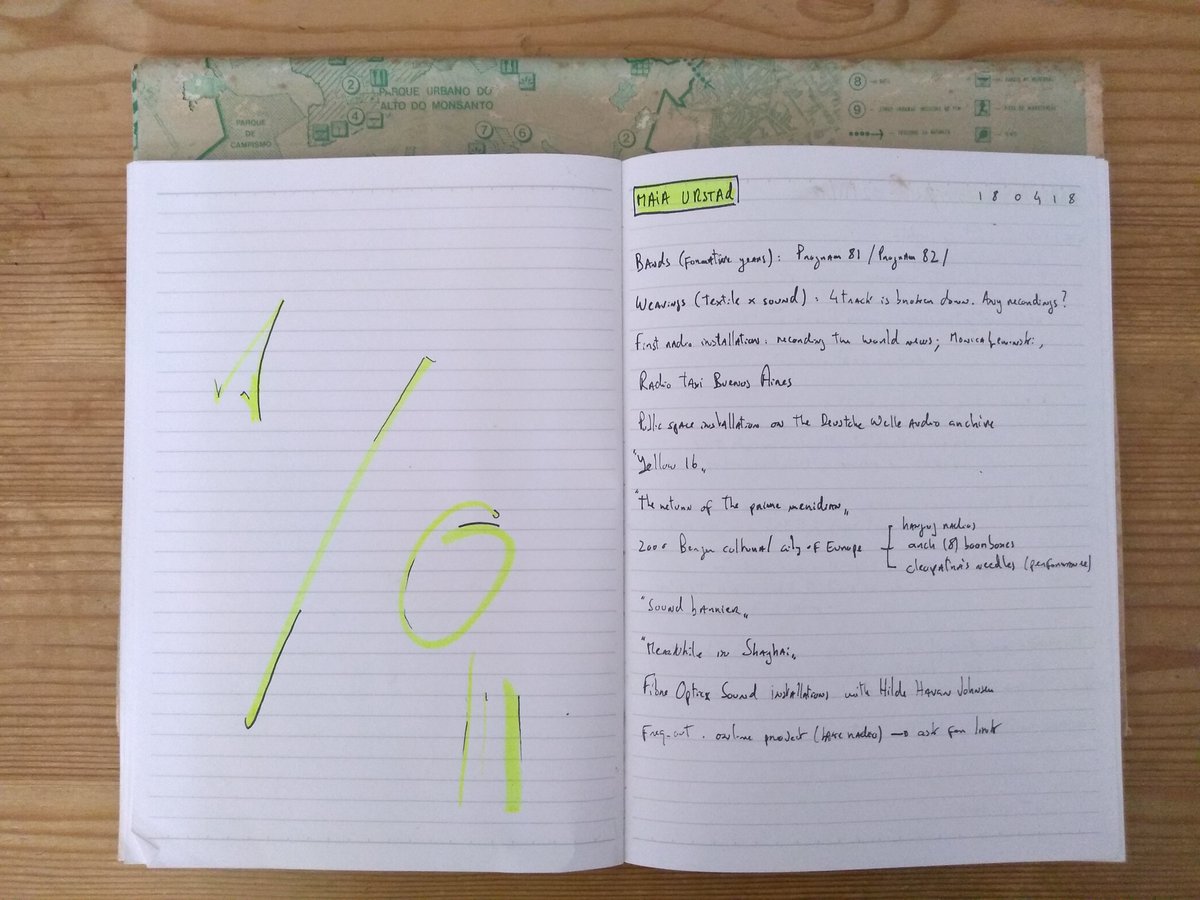 PARQUE URBANO DO
ALTO DO MONSANTO
PARQUE
DE
CAMPISMO
2
4
7
6
2
8
9
MAiA URSTAd
180418
Bands (formative years): Program 81 / Program 82 /
Weavings (textile x sound): 4 track is broken down. Any recordings?
First radio installation: recording the world news; Monica Lewinski,
Radio taxi Buenos Aires
Public space installation on the Deustche Welle Audio archive
"Yellow 16"
"The return of the prime meridian"
2000 Bergen cultural city of Europe
hanging radios
arch (8) boomboxes
cleopatra's needles (performance)
"Sound barrier"
"Meanwhile in Shaghai"
Fibre Optics Sound installations with Hilde Johnsen
Freq_out . online project (radio) → ask for link